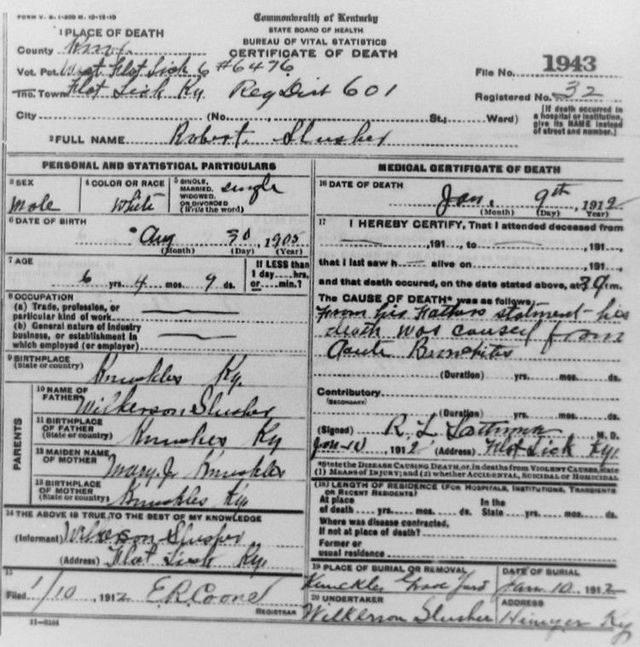 FORM V. S. 1-300 M. 12-15-10
Commonwealth of Kentucky
STATE BOARD OF HEALTH
BUREAU OF VITAL STATISTICS
CERTIFICATE OF DEATH
1 PLACE OF DEATH
County Knox
Vot. Pct. West Flat Lick 6 #6476
Inc. Town Flat Lick Ky. Reg Dist 601
City (No. St.; Ward)
File No. 1943
Registered No. 32
(If death occurred in a hospital or institution, give its NAME instead of street and number.)
2 FULL NAME Robert Slusher
PERSONAL AND STATISTICAL PARTICULARS
3 SEX Male
4 COLOR OR RACE White
5 SINGLE, MARRIED, WIDOWED, OR DIVORCED (Write the word) single
6 DATE OF BIRTH Aug 30, 1905
(Month) (Day) (Year)
7 AGE 6 yrs. 4 mos. 9 ds.
If LESS than 1 day hrs. or min.?
8 OCCUPATION
(a) Trade, profession, or particular kind of work
(b) General nature of industry business, or establishment in which employed (or employer)
9 BIRTHPLACE (State or country) Knuckles Ky.
PARENTS
10 NAME OF FATHER Wilkerson Slusher
11 BIRTHPLACE OF FATHER (State or country) Knuckles Ky
12 MAIDEN NAME OF MOTHER Mary J. Knuckles
13 BIRTHPLACE OF MOTHER (State or country) Knuckles Ky.
14 THE ABOVE IS TRUE TO THE BEST OF MY KNOWLEDGE
(Informant) Wilkerson Slusher
(Address) Flat Lick Ky.
15
Filed 1/10, 1912 E.R. Coone
REGISTRAR
MEDICAL CERTIFICATE OF DEATH
16 DATE OF DEATH Jan. 9th, 1912
(Month) (Day) Year
17 I HEREBY CERTIFY, That I attended deceased from
, 191 , to , 191 ,
that I last saw h alive on , 191 ,
and that death occured, on the date stated above, at m.
The CAUSE OF DEATH* was as follows:
from his Fathers statment his
death was caused from
Acute Bronchitis
(Duration) yrs. mos. ds.
Contributory
(SECONDARY)
(Duration) yrs. mos. ds.
(Signed) R. L. M. D.
Jan 10 1912 (Address) Flat Lick Ky.
*State the DISEASE CAUSING DEATH, or, in deaths from VIOLENT CAUSES, state (1) MEANS OF INJURY; and (2) whether ACCIDENTAL, SUICIDAL or HOMICIDAL
(18) LENGTH OF RESIDENCE (FOR HOSPITALS, INSTITUTIONS, TRANSIENTS OR RECENT RESIDENTS)
At place of death yrs. mos. ds. In the State yrs. mos. ds.
Where was disease contracted,
If not at place of death?
Former or usual residence
19 PLACE OF BURIAL OR REMOVAL
Knuckles Grave Yard
DATE OF BURIAL
Jan. 10, 1912
20 UNDERTAKER
Wilkerson Slusher
ADDRESS
Ky